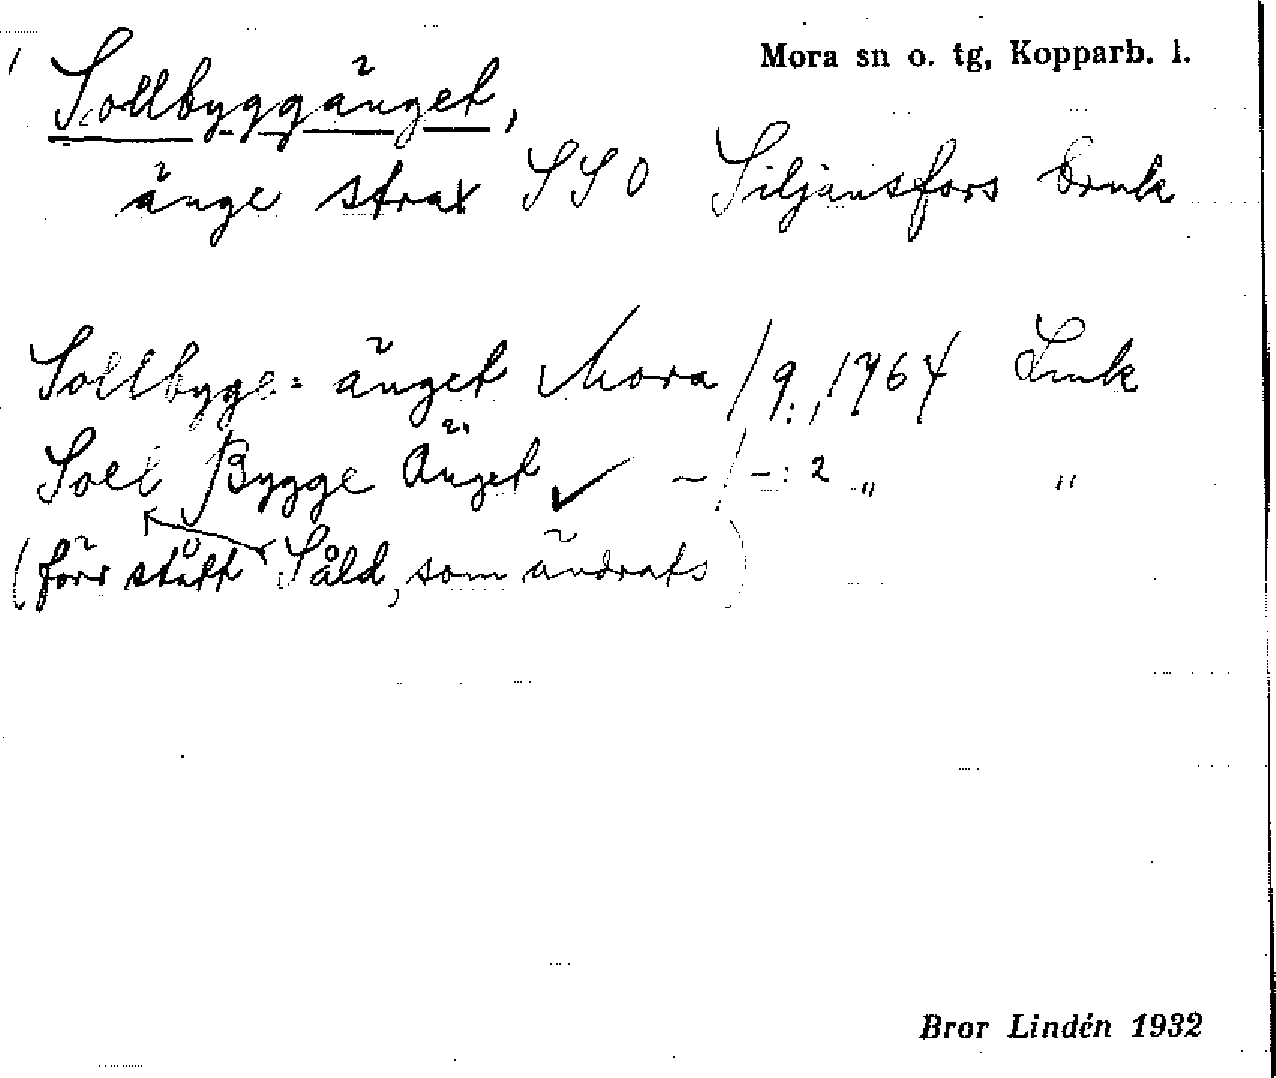 Mora sn o. tg, Kopparb. l.
Sollbyggänget,
änge strax SSO Siljansfors bruk
Sollbygge= änget Mora / 9:, 1764 Link
Soll Bygge Änget ✓ – / –: 2 „ „
(förr stått Såld, som ändrats)
Bror Lindén 1932